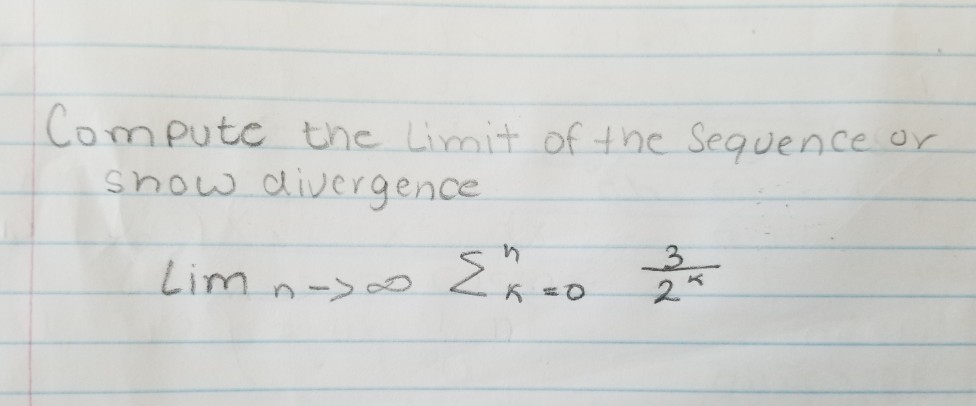 Compute the Limit of the Sequence or
show divergence
Lim n->∞ Σ^n_{k=0} 3/2^k